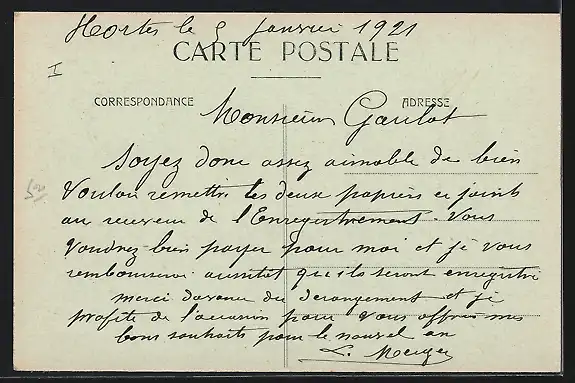 Hortes le 5 Janvier 1921
CARTE POSTALE
I
CORRESPONDANCE
ADRESSE
Monsieur Gaulot
Soyez donc assez aimable de bien
vouloir remettre les deux papiers ci joints
au receveur de l'Enregistrement. Vous
voudrez bien payer pour moi et je vous
rembourserai aussitot qu'ils seront enregistré
merci d'avance du derangement et je
profite de l'occasion pour vous offrir mes
bons souhaits pour le nouvel an